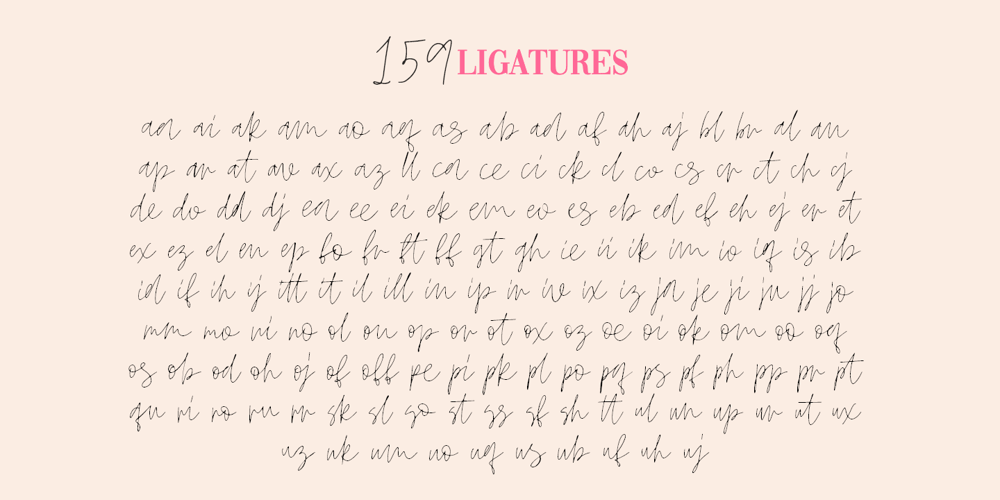 159 LIGATURES
aa ai ak am ao aq as ab ad af ah aj bl br al an
ap ar at av ax az ll ca ce ci ck cl co cs cr ct ch cj
de do dd dj ea ee ei ek em eo es eb ed ef eh ej er et
ex ez el en ep fo fr ft ff gt gh ie ii ik im io iq is ib
id if ih ij itt it il ill in ip ir iv ix iz ja je ji ju jj jo
mm mo ni no ol on op or ot ox oz oe oi ok om oo oq
os ob od oh oj of off pe pi pk pl po pq ps pf ph pp pr pt
qu ri ro ru rr sk sl so st ss sf sh tt ul un up ur ut ux
uz uk um uo uq us ub uf uh uj